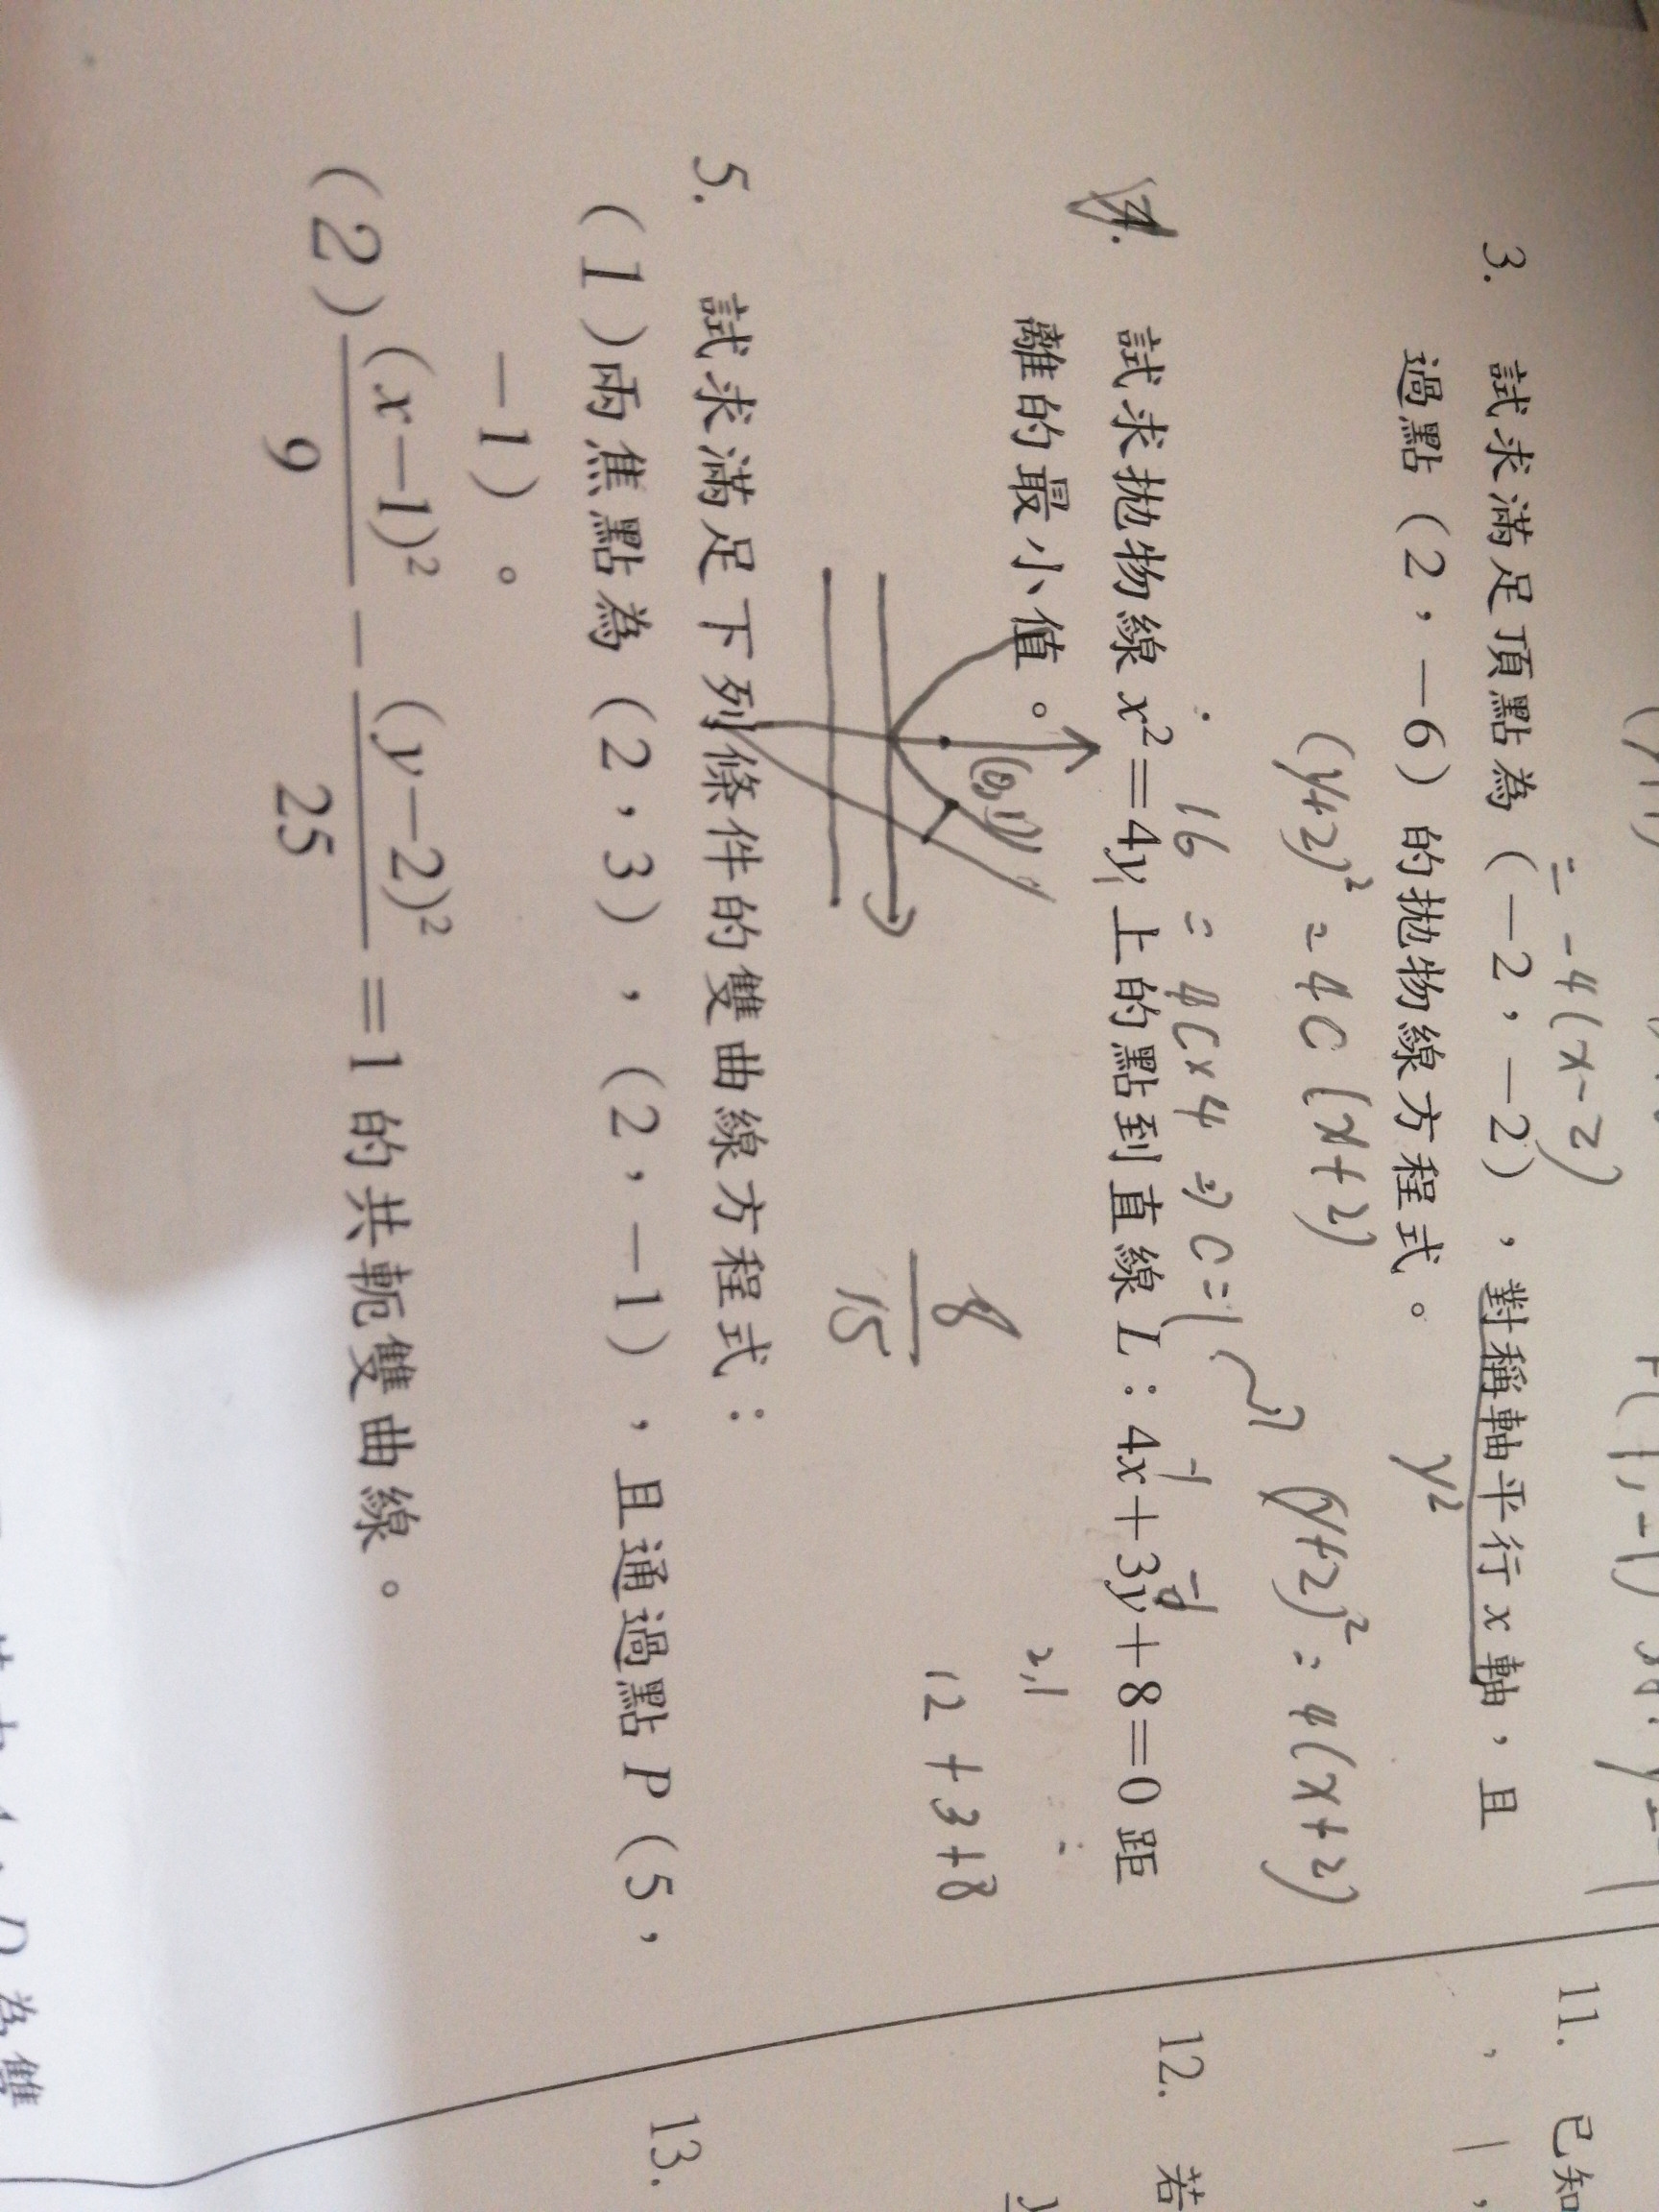 = -4(x-2)
3. 試求滿足頂點為(-2,-2),對稱軸平行 x 軸,且
過點(2,-6)的拋物線方程式。
y²
(y+2)² = 4C(x+2)
(y+2)² = 4(x+2)
16 = 4C×4 ⇒ C=1
4. 試求拋物線 x²=4y 上的點到直線 L:4x+3y+8=0 距
離的最小值。
2,1
12+3+8
8
15
5. 試求滿足下列條件的雙曲線方程式:
(1)兩焦點為(2,3),(2,-1),且通過點 P(5,
-1)。
(2)(x-1)²/9 - (y-2)²/25 =1 的共軛雙曲線。
11. 已知
12. 若
13.
D 為雙